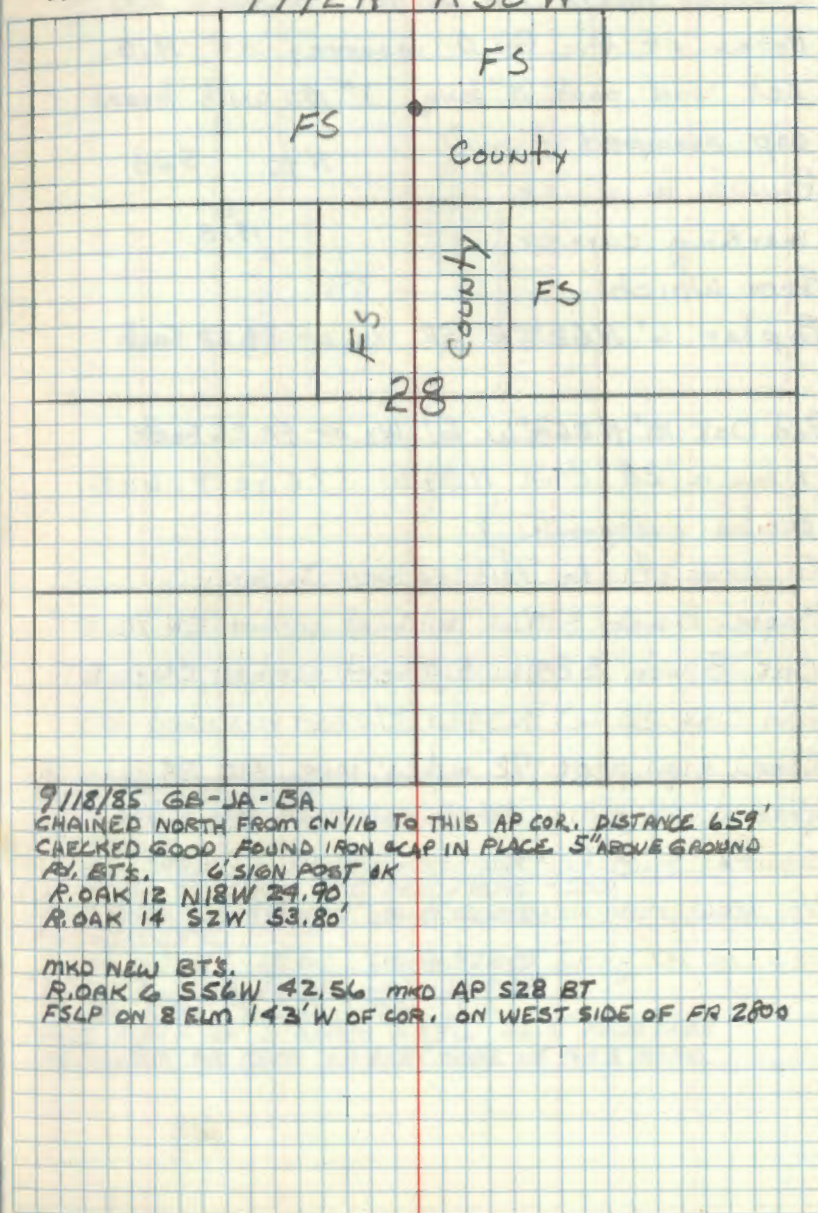 R36W
FS
FS
County
FS
County
FS
28
9/18/85 GB-JA-BA
CHAINED NORTH FROM CN 1/16 TO THIS AP COR. DISTANCE 659'
CHECKED GOOD FOUND IRON & CAP IN PLACE 5" ABOVE GROUND
BT'S. 6' SIGN POST OK
R.OAK 12 N18W 24.90'
R.OAK 14 S2W 53.80'
MKD NEW BT'S.
R.OAK 6 S56W 42.56 MKD AP S28 BT
FSLP ON 8 ELM 143' W OF COR. ON WEST SIDE OF FR 2800